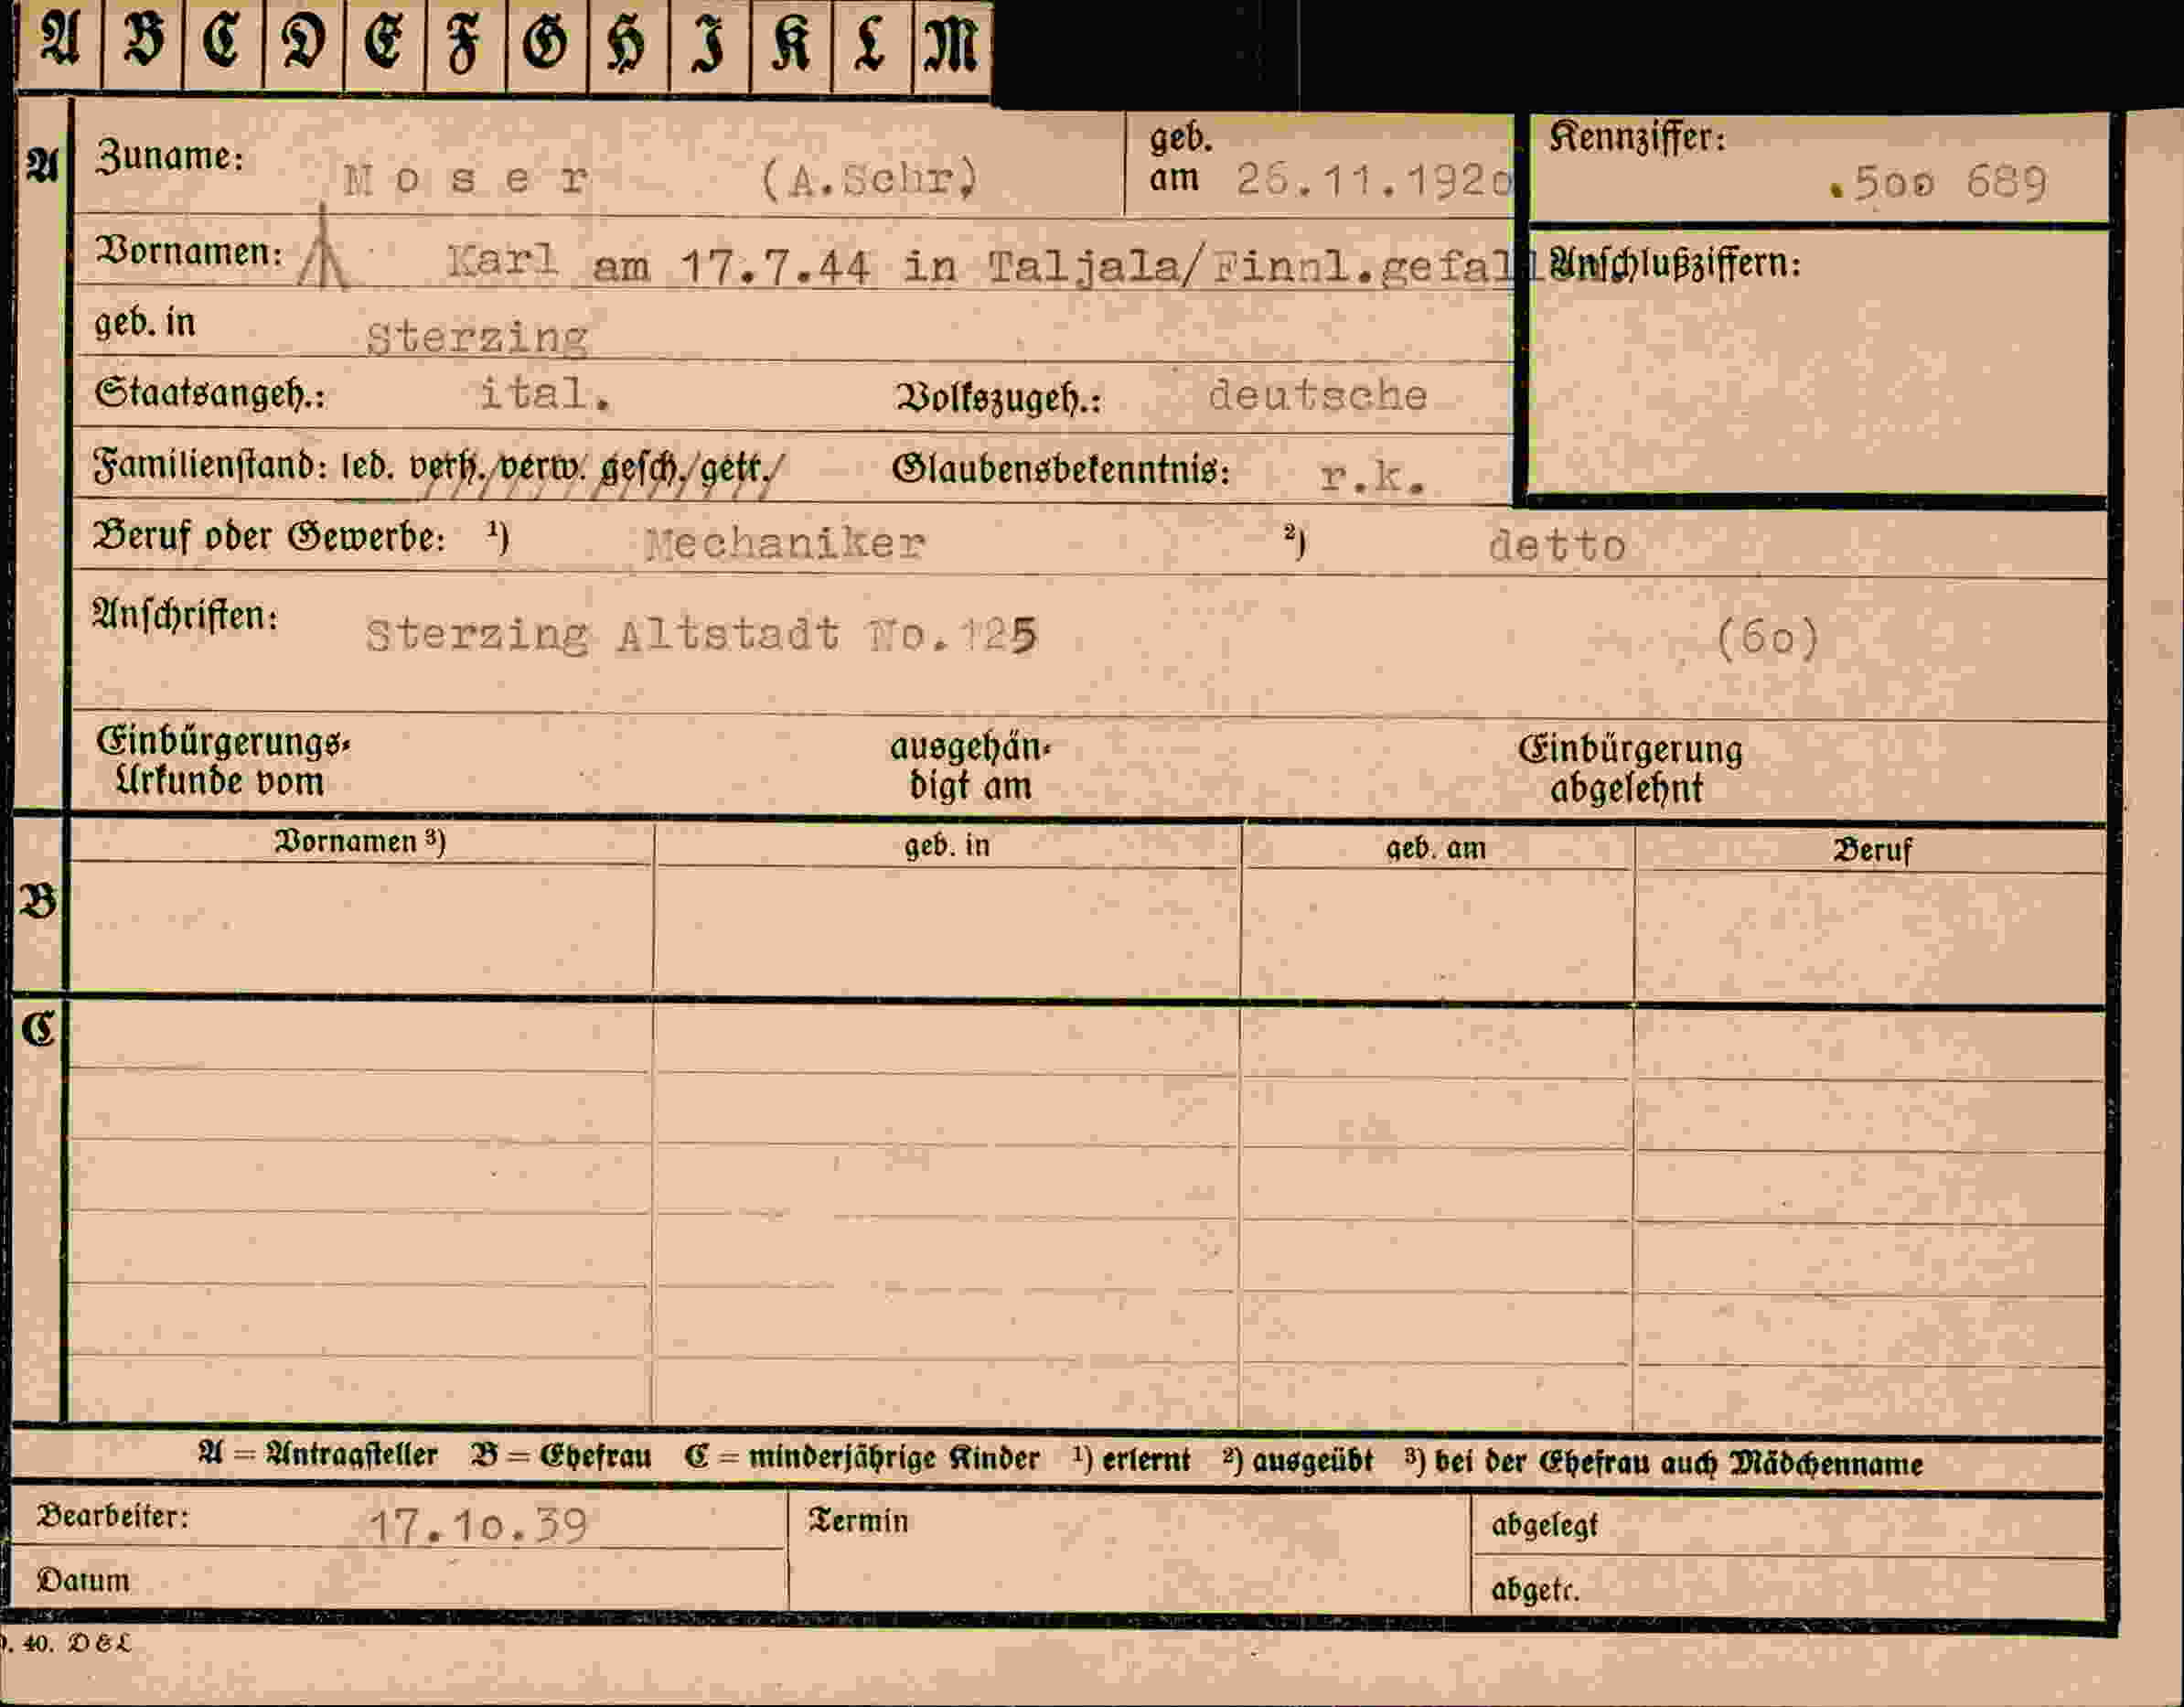 A B C D E F G H I K L M
A Zuname: Moser (A.Schr) geb. am 26.11.1920 Kennziffer: .500 689
Vornamen: Karl am 17.7.44 in Taljala/Finnl.gefall Anschlußziffern:
geb. in Sterzing
Staatsangeh.: ital. Volkszugeh.: deutsche
Familienstand: led. verh./verw. gesch./getr./ Glaubensbekenntnis: r.k.
Beruf oder Gewerbe: 1) Mechaniker 2) detto
Anschriften: Sterzing Altstadt No.125 (60)
Einbürgerungs- ausgehän- Einbürgerung
Urkunde vom digt am abgelehnt
Vornamen 3) geb. in geb. am Beruf
B
C
A = Antragsteller B = Ehefrau C = minderjährige Kinder 1) erlernt 2) ausgeübt 3) bei der Ehefrau auch Mädchenname
Bearbeiter: 17.10.39 Termin abgelegt
Datum abgetr.
40. D & L